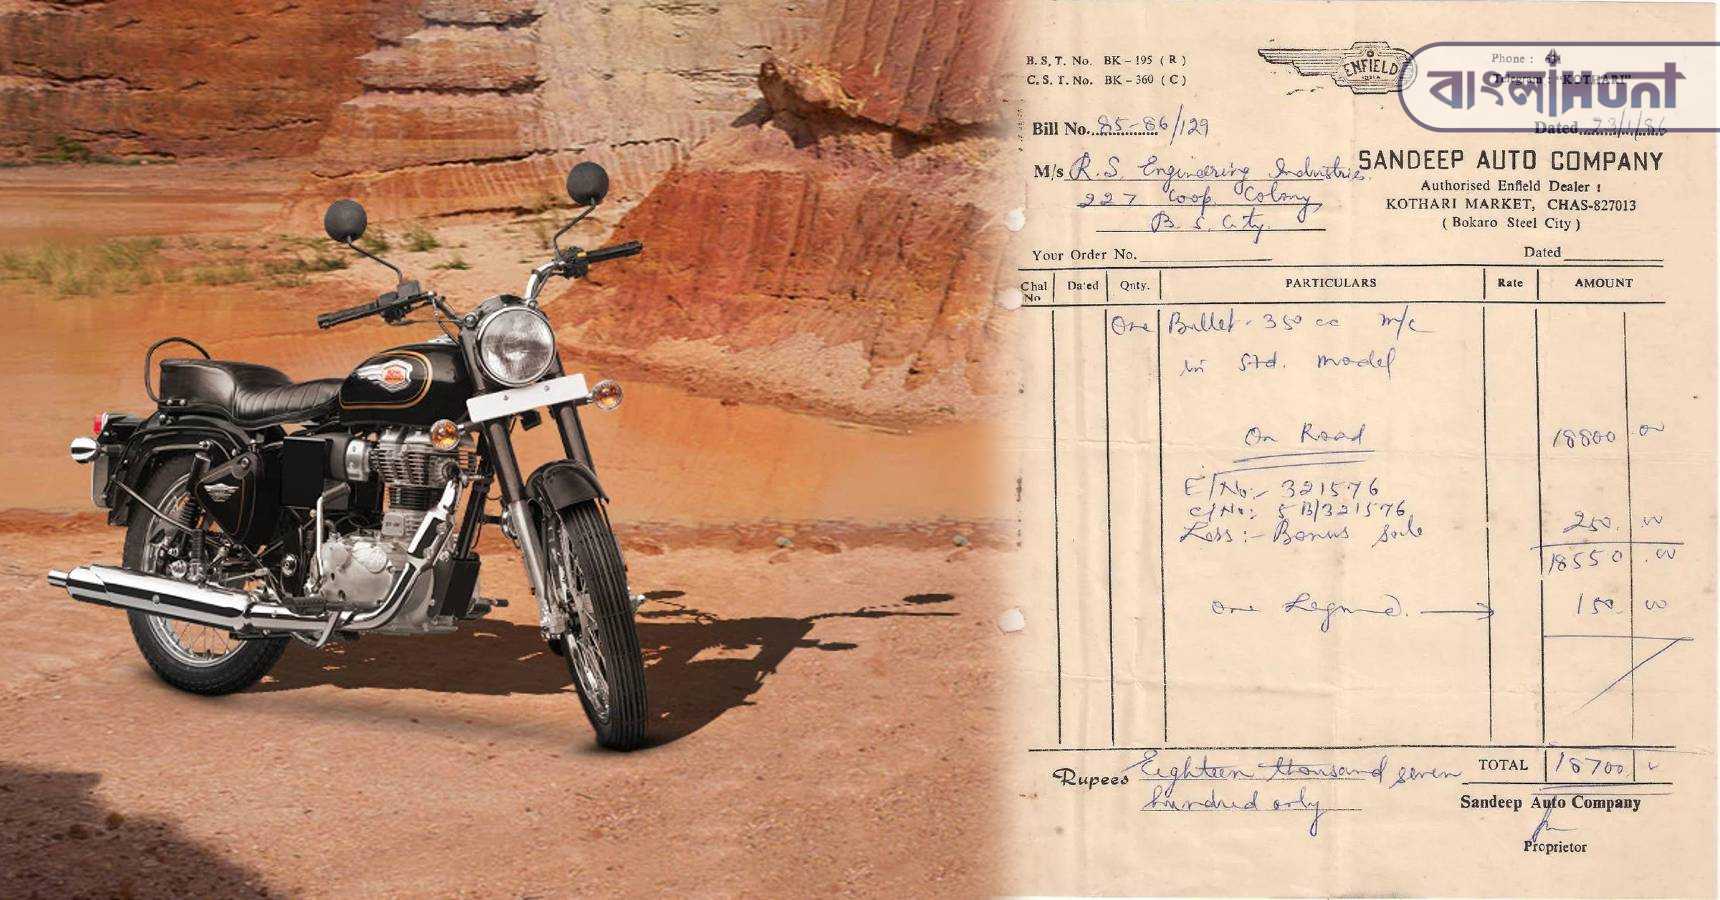 B.S.T. No. BK-195 (R)
C.S.T. No. BK-360 (C)
ENFIELD
INDIA
Phone :
"KOTHARI"
বাংলাHunt
Bill No. 85-86/129
Dated 23/1/86
M/s R.S. Engineering Industries
227 Coop. Colony
B. S. City.
SANDEEP AUTO COMPANY
Authorised Enfield Dealer :
KOTHARI MARKET, CHAS-827013
( Bokaro Steel City )
Your Order No.
Dated
Chal No Dated Qnty. PARTICULARS Rate AMOUNT
One Bullet - 350 cc m/c
in Std. model
On Road 18800 00
E/No:- 321576
C/No: 5B/321576
Less :- Bonus 250. 00
18550.00
one 150. 00
Rupees Eighteen thousand seven
hundred only
TOTAL 18700
Sandeep Auto Company
Proprietor